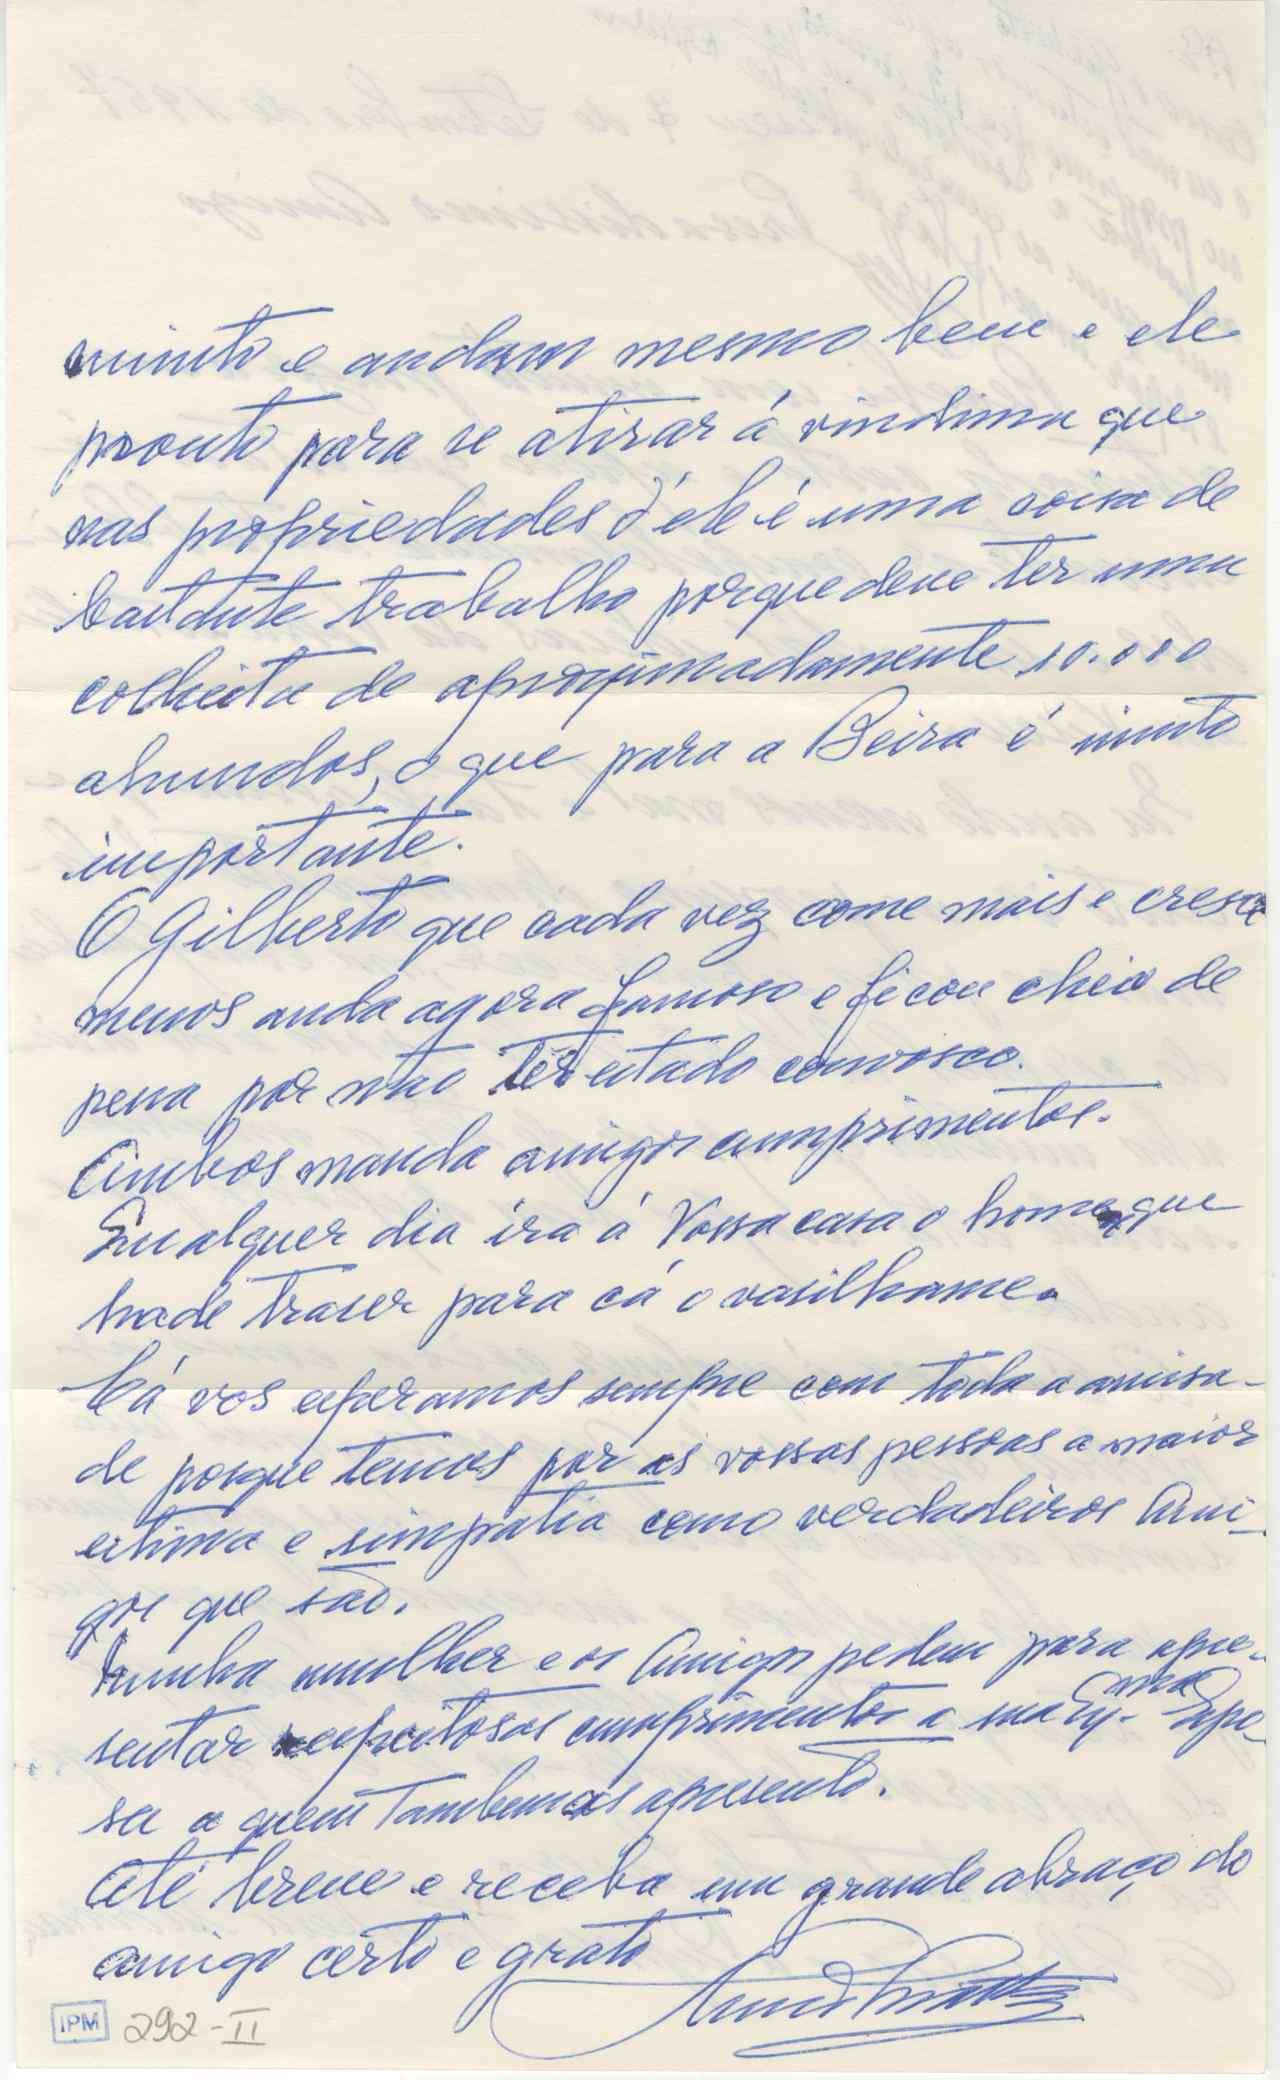 muito e andam mesmo bem e ele
pronto para se atirar á vindima que
nas propriedades d'ele é uma coisa de
bastante trabalho porque deve ter uma
colheita de aproximadamente 10.000
almudos, o que para a Beira é muito
importante.
O Gilberto que cada vez come mais e cresce
menos anda agora famoso e ficou cheio de
pena por não ter estado comvosco.
Ambos manda amigos cumprimentos.
Em alguer dia irá á Vossa casa o home que
hade traser para cá o vasilhame.
Cá vos esperamos sempre com toda a amisa-
de porque temos por as vossas pessoas a maior
estima e simpatia como verdadeiros Ami-
gos que são.
Minha mulher e os Amigos pedem para apre-
sentar respeitosos cumprimentos a sua Ex.ma Espo-
sa a quem tambem os apresento.
Até breve e receba um grande abraço do
amigo certo e grato
IPM 292-II